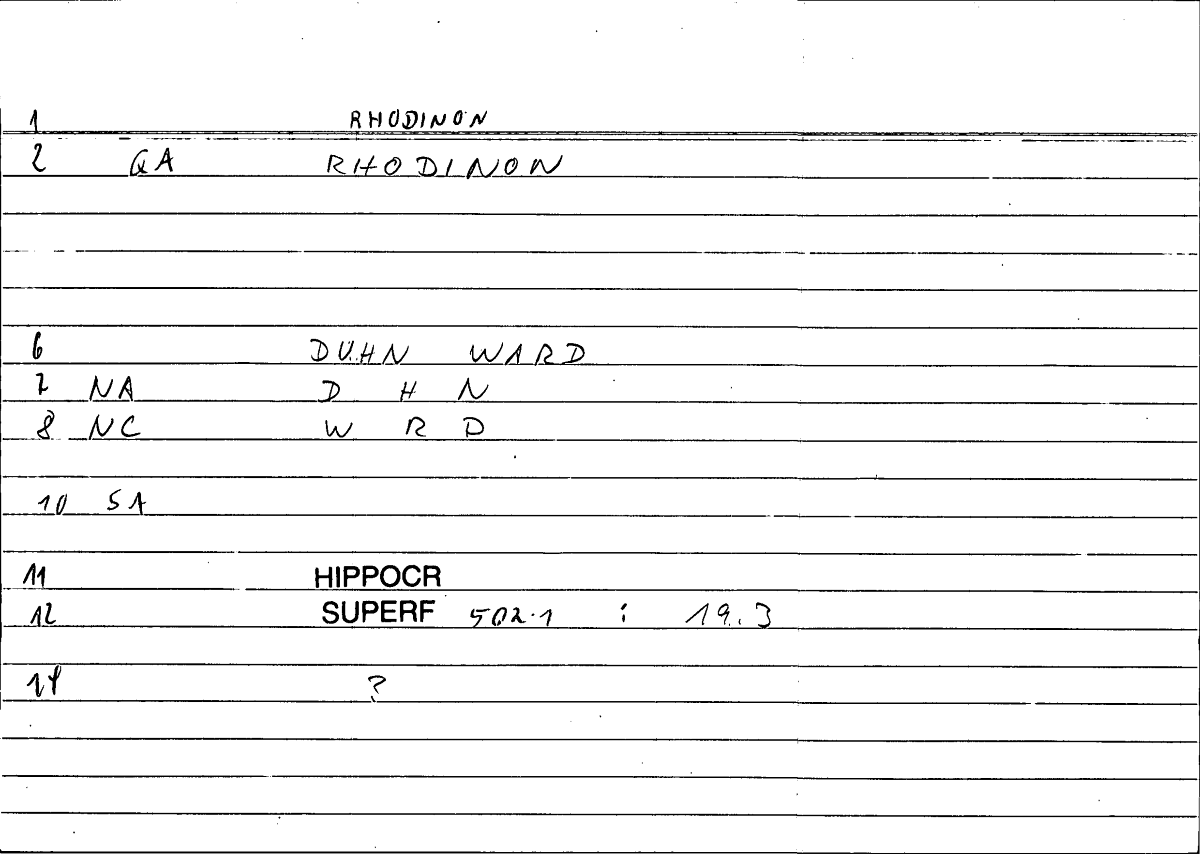 1 RHODINON
2 QA RHODINON
6 DUHN WARD
7 NA D H N
8 NC W R D
10 SA
11 HIPPOCR
12 SUPERF 502.1 : 19.3
14 ?